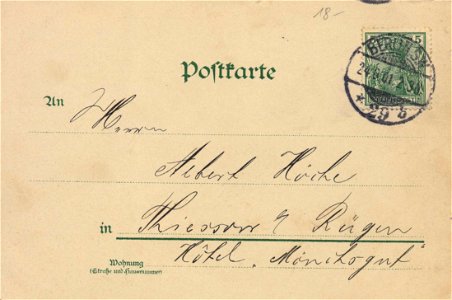 18.-
5
Postkarte
BERLIN SW
29 b
An
Herrn
Albert Höche
in Thiessow a/ Rügen
Wohnung
(Straße und Hausnummer)
Hôtel "Mönchsgut"